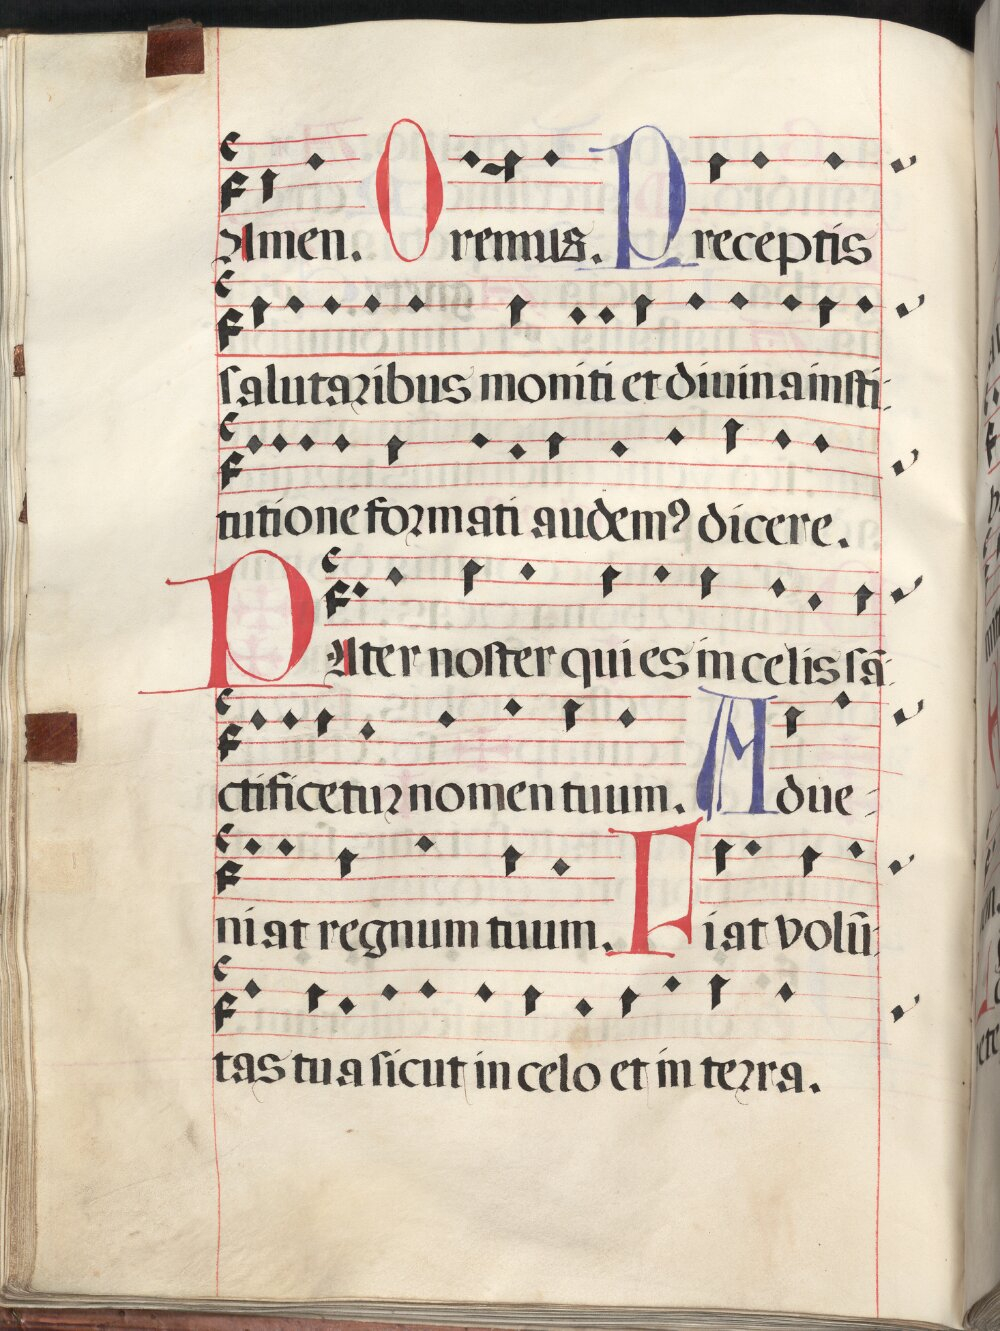 Amen. Oremus. Preceptis
salutaribus moniti et diuina insti-
tutione formati audemꝰ dicere.
PAter noster qui es in celis sā-
ctificetur nomen tuum. Adue-
niat regnum tuum. Fiat volū-
tas tua sicut in celo et in terra.